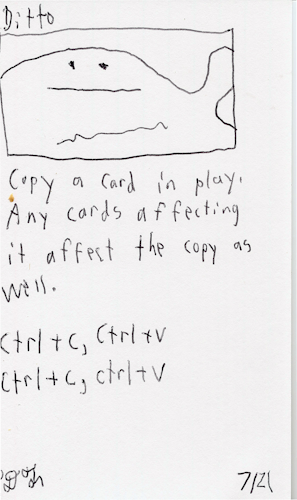 Ditto
Copy a card in play.
Any cards affecting
it affect the copy as
well.
Ctrl+C, Ctrl+V
Ctrl+C, Ctrl+V
7/21